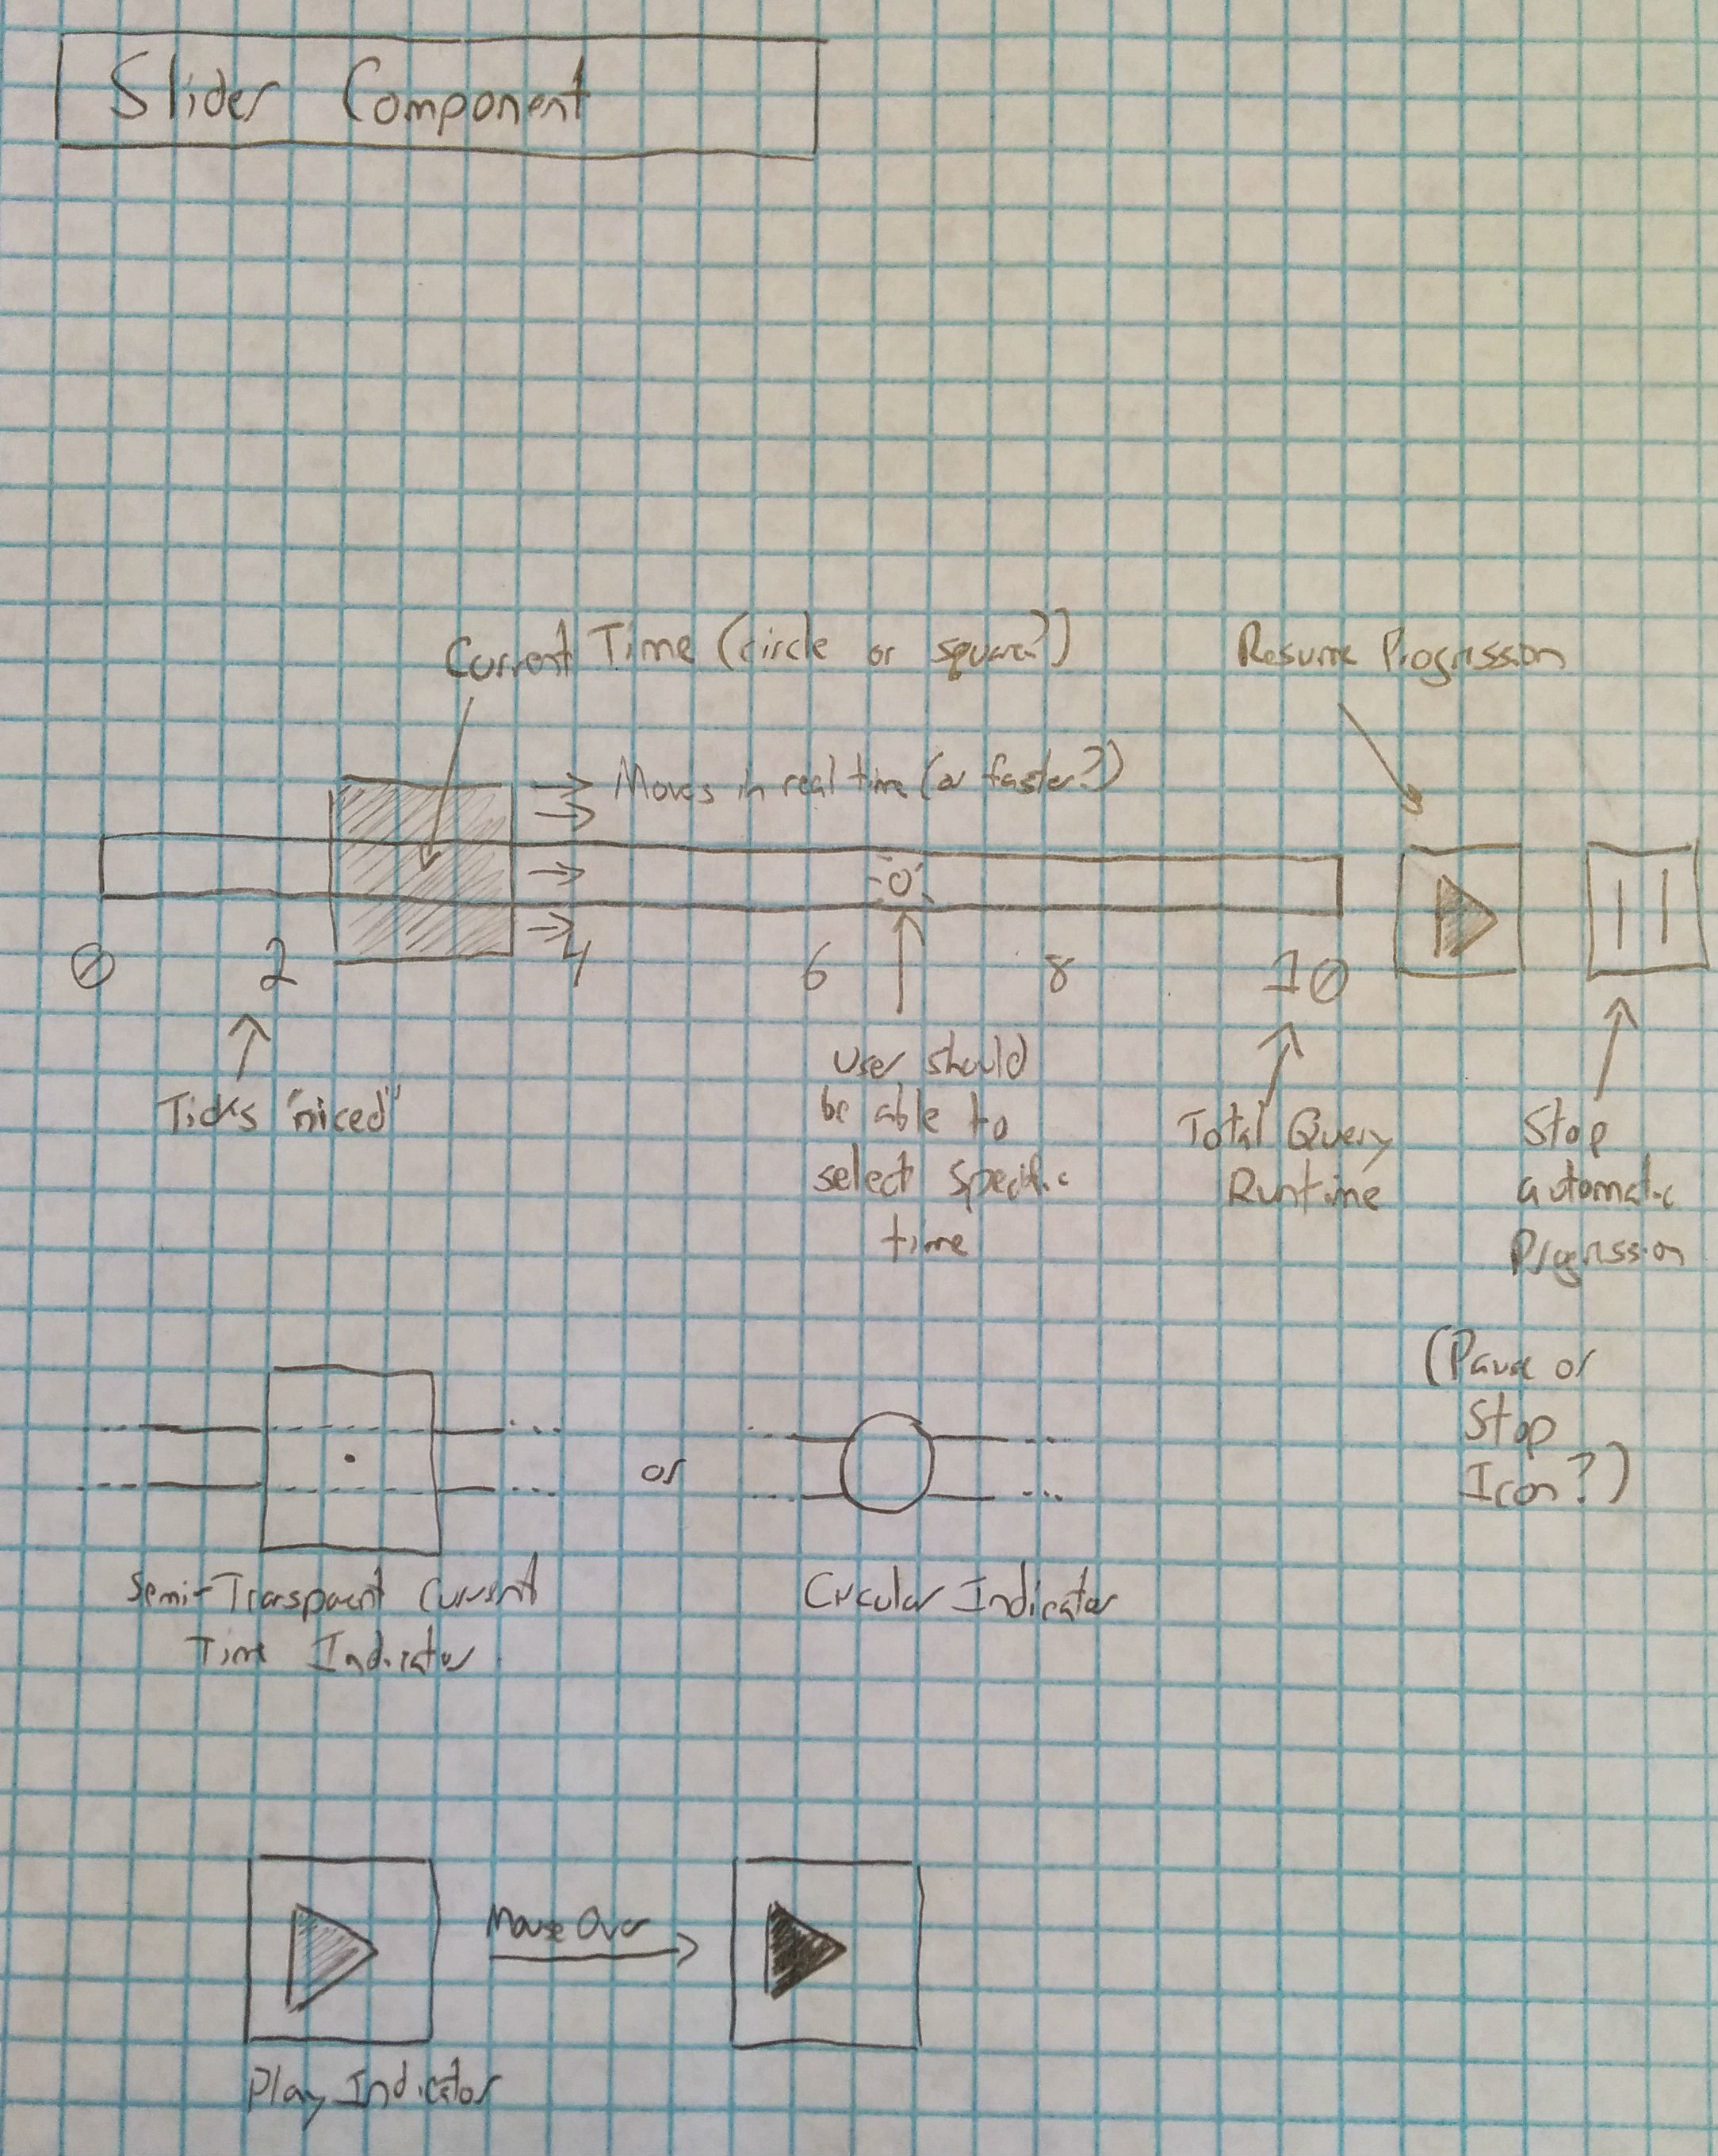 Slider Component
Current Time (circle or square?)
Resume Progression
Moves in real time (or faster?)
0 2 4 6 8 10
Ticks "niced"
User should
be able to
select specific
time
Total Query
Runtime
Stop
automatic
Progression
(Pause or
Stop
Icon?)
or
Semi-Transparent Current
Time Indicator
Circular Indicator
Mouse Over
Play Indicator